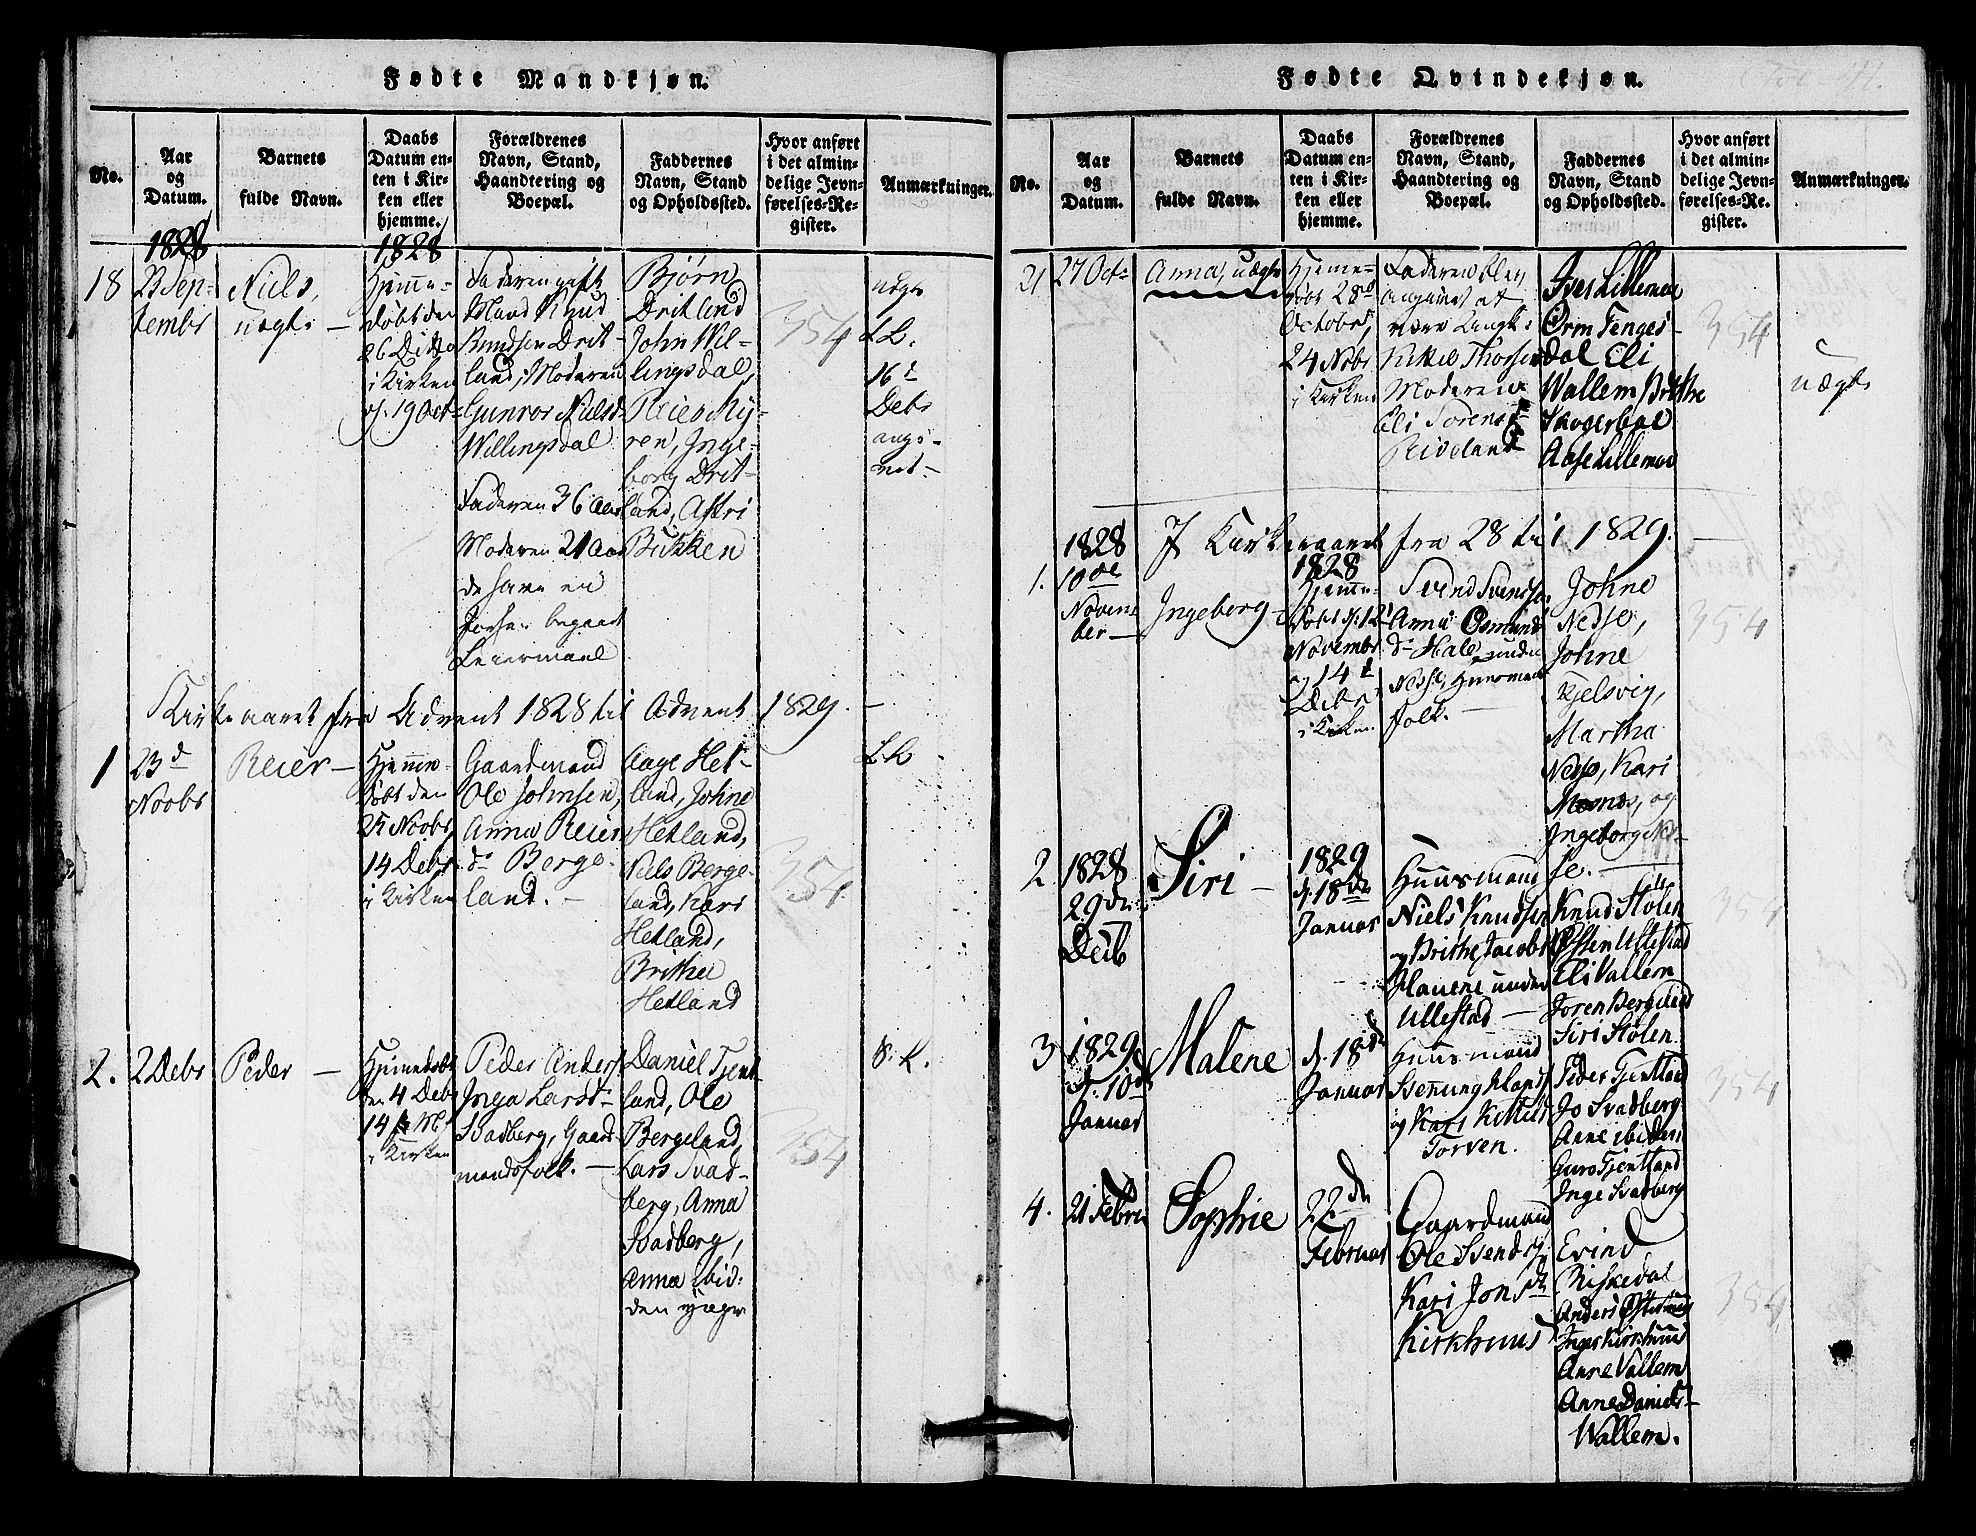 Fødte Mandkjøn.
No.
Aar
og
Datum.
Barnets
fulde Navn.
Daabs
Datum en-
ten i Kir-
ken eller
hjemme.
Forældrenes
Navn, Stand,
Haandtering og
Boepæl.
Faddernes
Navn, Stand
og Opholdssted.
Hvor anført
i det almin-
delige Jevn-
førelses-Re-
gister.
Anmærkninger.
1828
1828
18
23 Sep-
tembr
Niels,
uægte —
Hjemme-
døbt den
26 Ditto
i Kirken
d. 19 Oct
Faderen gift
Mand Knud
Knudsen Drit-
land, Moderen
Gunvor Nielsd
Willingsdal
Faderen 36 Aar
Moderen 21 Aar
de have en
begaaet
Leiermaal
Bjørn
Dritland
John Wil-
lingsdal,
Reier Ky-
ren, Inge-
borg Drit-
land, Astri
Bukken
354
16
Debr
angi-
vet —
Kirkeaaret fra Advent 1828 til Advent 1829. —
1
23d
Novbr
Reier —
Hjemme-
døbt den
25 Novbr,
14 Debr
i Kirken
Gaardmand
Ole Johnsen,
Anna Reiers
dr Berge-
land. —
Aage Het-
land, Johne
Hetland,
Niels Berge-
land, Kari
Hetland,
Brithe
Hetland
354
2.
2 Debr
Peder —
Hjemmedøbt
den 4 Debr
14
i Kirken
Peder Anders
Inga Larsd
Svadberg, Gaard-
mandsfolk. —
Daniel Tjent-
land, Ole
Bergeland,
Lars Svad-
berg, Anna
Svadberg,
Anna ibid:
den yngre
354
Fødte Qvindekjøn.
No.
Aar
og
Datum.
Barnets
fulde Navn.
Daabs
Datum en-
ten i Kir-
ken eller
hjemme.
Forældrenes
Navn, Stand,
Haandtering og
Boepæl.
Faddernes
Navn, Stand
og Opholdssted.
Hvor anført
i det almin-
delige Jevn-
førelses-Re-
gister.
Anmærkninger.
21
27 Oct
Anna, uægte
Hjemme-
døbt 28de
October,
24 Nobr
i Kirken
Faderen blev
angivet at
være Ungk:
Kittel Thorsen
Moderen
Eli Sørensd
Rivoland
Iver Lillemoe
Orm Tenges-
dal Eli
Wallem Brithe
Skogerbøe
Aase Lillemoe
354
uægte
I Kirkeaaret fra 28 til 1829. —
1.
1828
10de
Novem-
ber —
Ingeborg —
1828
Hjemme-
døbt d. 12
Novembr
og 14d
Debr
i Kirken
Svend Svends,
Anna Osmund
dr Hale under
Nesse, Huusmands
folk. —
Johne
Nesse,
Johne
Kjelsvig,
Martha
Nesse, Kari
og
Ingeborg Nes-
se. —
354
2
1828
29de
Decb
Siri —
1829
d. 18de
Januar
Huusmand
Niels Knudsen
og Brithe Jacobs
Hauene under
Ullestad —
Knud Stølen
Østen Ullestad
Eli Vallem
Joren Bergeland
Siri Stølen
354
3
1829
d. 10de
Januar
Malene
d. 18de
Januar
Huusmand
Svenung Hans
og Kari Kittels
Torven.
Peder Tjentland
Jo Svadberg
Anne ibidem
Guro Tjentland
Inge Svadberg
354
4.
21 Febr
Sophie
22de
Februar
Gaardmand
Ole Svends
Kari Jonsdr
Kirkhuus
Evind
Riskedal
Anders
Inger Kirkhuus
Anne Vallem
Anne Daniels-
Wallem.
354